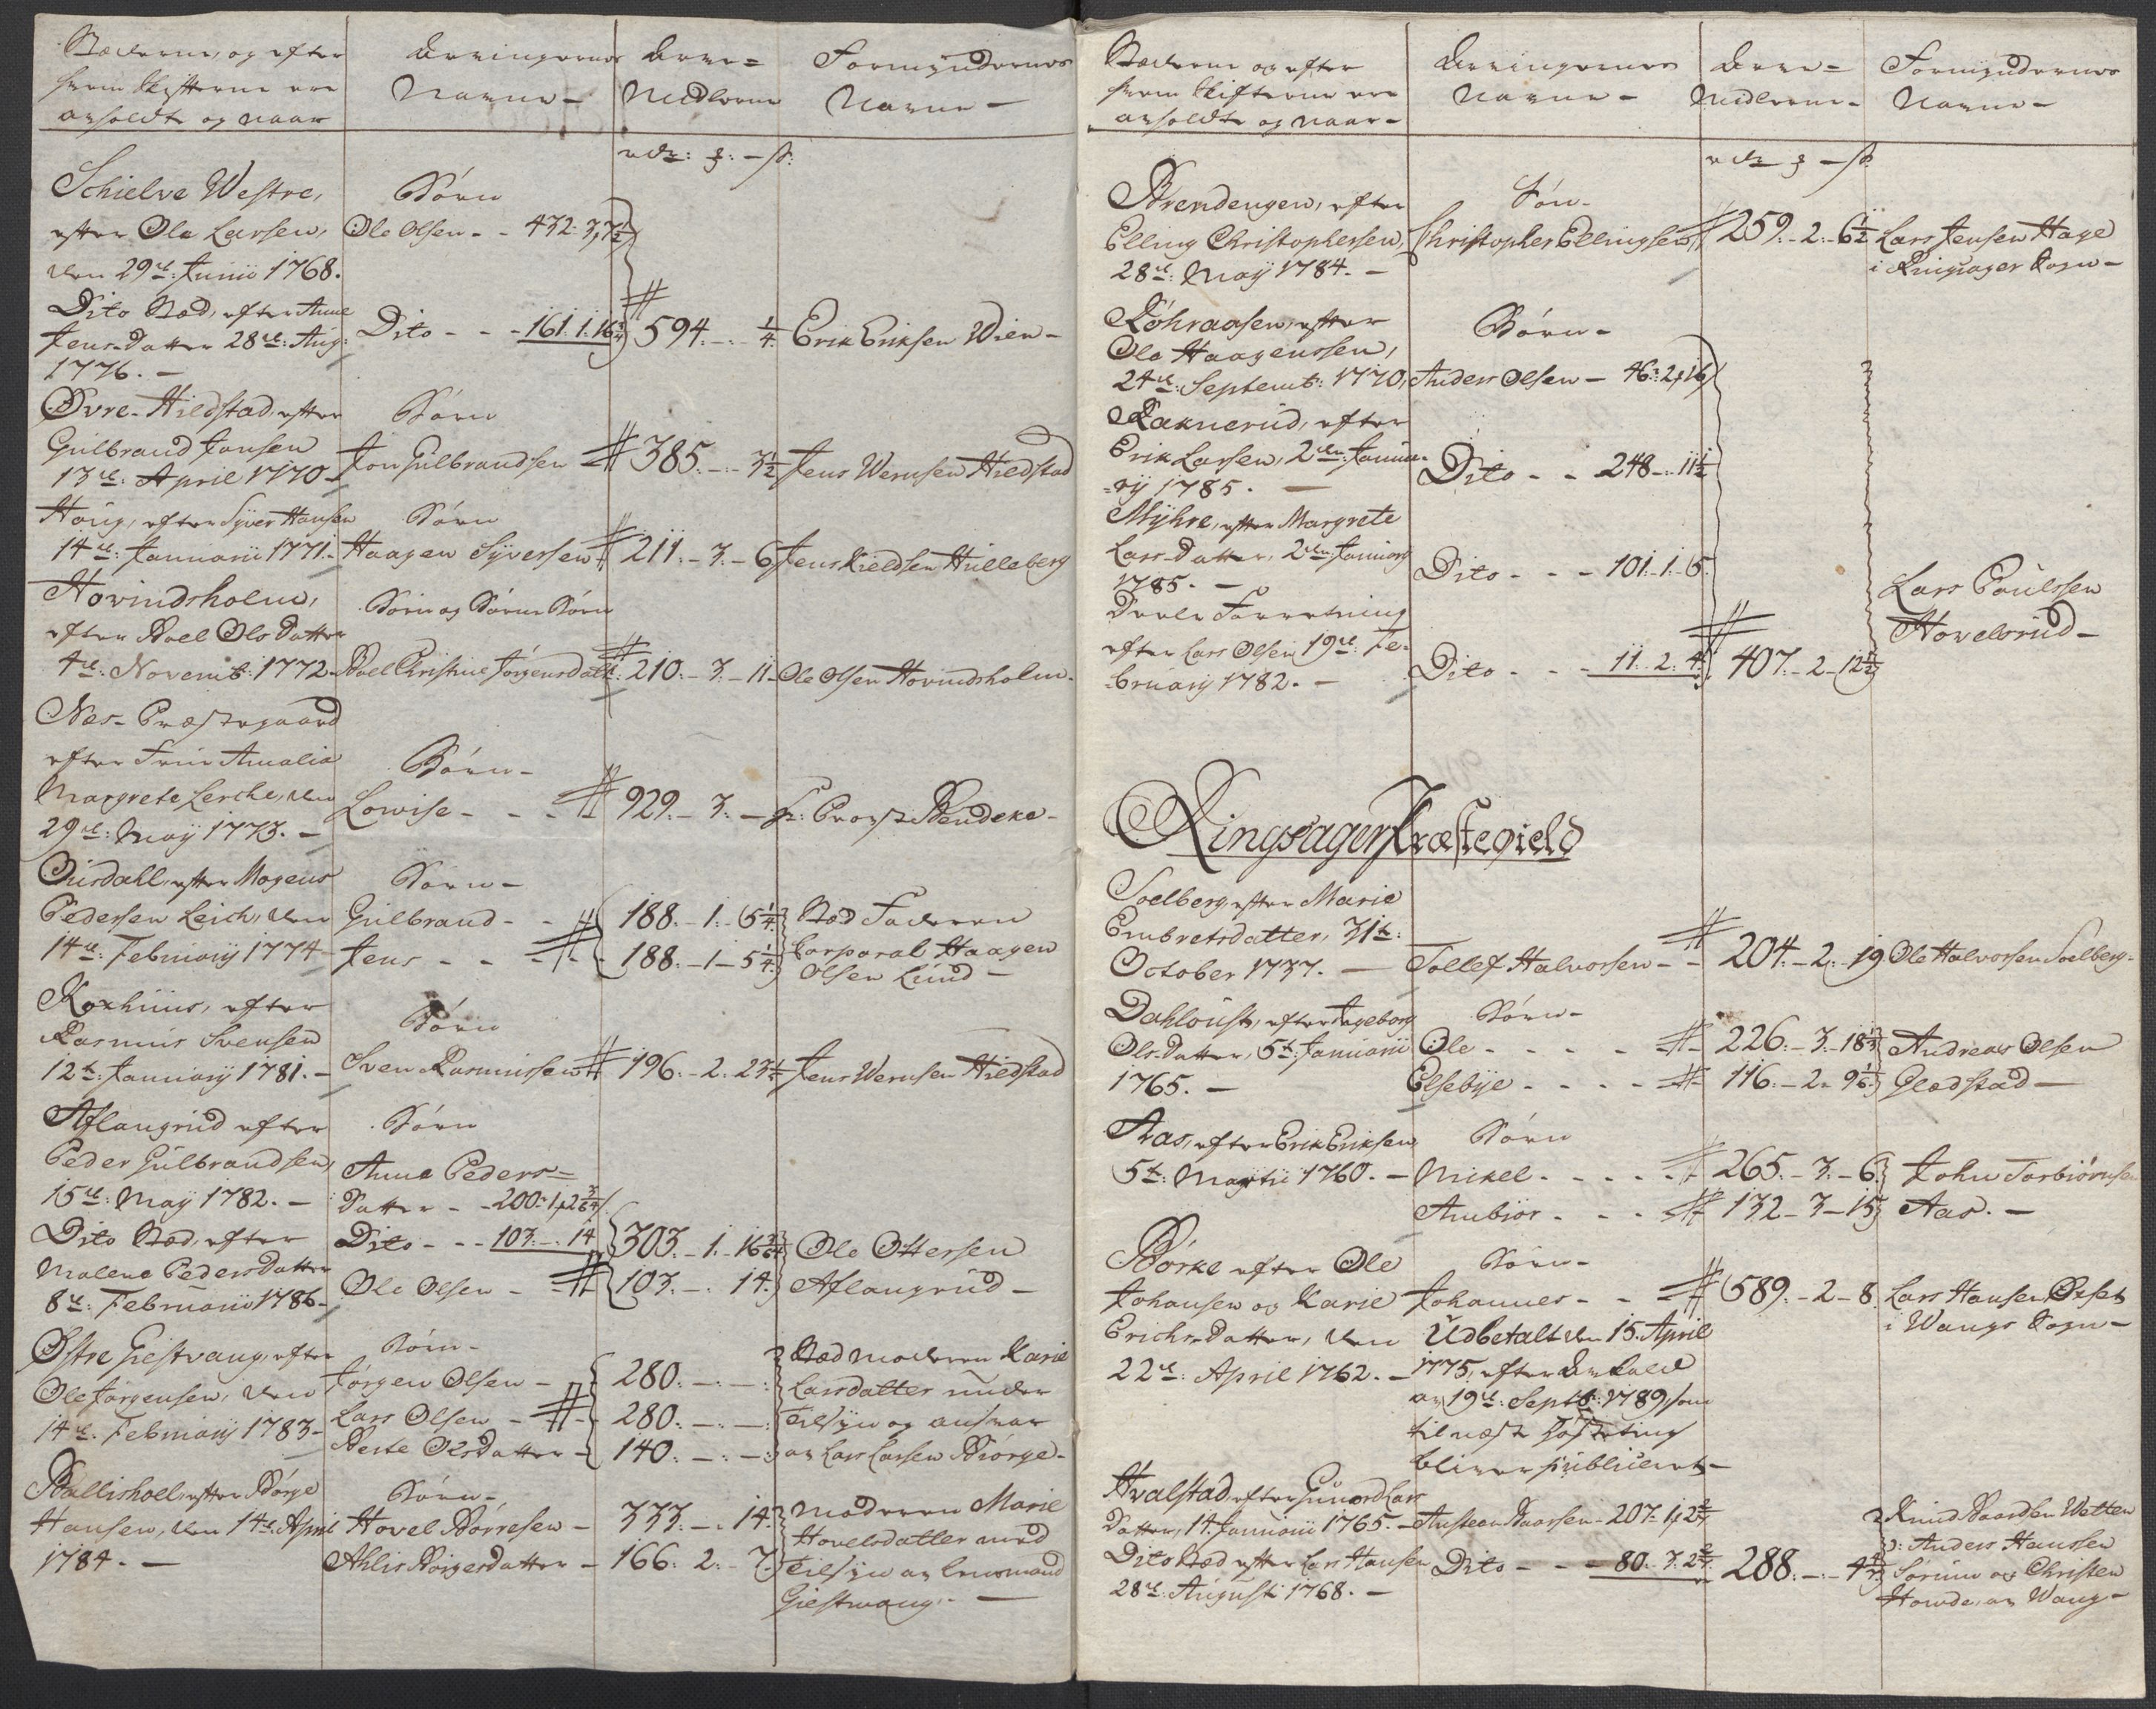 Stæderne, og efter
hvem Skifterne ere
afholdte og naar
Arvingernes
Navne -
Arve=
Midlerne
Formyndernes
Navne -
rdr: ꝫ: - s:
Schielve Westre,
efter Ole Larsen,
den 29de: Junii 1768.
Børn
Ole Olsen - - 432. 3, 7½
Dito Stæd, efter Anne
Jens-Datter 28de: Aug:
1776. -
Dito - - - 161. 1. 16¾
594. - - ¼
Erik Eriksen Wien -
Øvre-Hildstad, efter
Gulbrand Jonsen
13de: April 1770 -
Børn
Jon Gulbrandsen
385. - - 3½
Jens Wernsen Hildstad
Houg, efter Syver Hansen
14de: Januarii 1771. -
Børn
Haagen Syversen
211. - 3. - 6
Jens Kieldsen Hulleberg
Hovindsholm,
efter Boel Ols Datter
4de: Novemb: 1772 -
Børn og Børne Børn
Boel Christine Jørgensdatt:
210. - 3. - 11 -
Ole Olsen Hovindsholm.
Næs-Præstegaard
efter Frue Amalia
Margrete Lerche, den
29de: May 1773. -
Børn -
Lowise - - -
929. - 3. -
Hr: Provst Bendeke -
Ousdahl, efter Mogens
Pedersen Leich, den
14de: Februarij 1774 -
Børn -
Gulbrand - -
188. - 1. - 5¼
Jens - - -
188. - 1 - 5¼
Sted Faderen
Corporal Haagen
Olsen Lund -
Koxhuus, efter
Rasmus Svensen
12te: Januarij 1781. -
Børn
Sven Rasmussen
196. - 2. 23½
Jens Wernsen Hildstad
Aflangrud efter
Peder Gulbrandsen,
15de: May 1782. -
Børn
Anne Peders=
Datter - - 200. 1, 2
Dito Stæd, efter
Malene Pedersdatter
8de: Februarii 1786 -
Dito - - - 103. - 14
303. - 1. - 16
Ole Olsen -
103. - . 14.
Ole Ottersen
Aflangrud -
Østre Giestvang, efter
Ole Jørgensen, den
14de: Februarij 1783 -
Børn -
Jørgen Olsen -
280. - . - .
Lars Olsen -
280. - . - .
Berte Olsdatter -
140. - . - .
Stæd moderen Karie
Larsdatter under
Tilsyn og ansvar
av Lars Larsen Biørge -
Ballishoel, efter Børge
Hansen, den 14de April
1784. -
Børn -
Hovel Børresen -
333. - . 14.
Ahlis Børgesdatter -
166. 2. - 7.
Moderen Marie
Hovelsdatter med
Tilsyn av Lensmand
Giestwang. -
Stæderne og efter
hvem Skifterne ere
afholdte og naar -
Arvingernes
Navne -
Arve=
Midlerne -
Formyndernes
Navne -
rdr ꝫ - s
Brendengen, efter
Elling Christophersen,
28de: May 1784. -
Søn -
Christopher Ellingsen
259. - 2. - 6½
Lars Jensen Hage
i Ringsager Sogn -
Røhraasen, efter
Ole Haagenssen,
24de: Septemb: 1770,
Børn -
Anders Olsen - 46. 2, 16
Raknerud, efter
Erik Larsen, 2den Janua=
=rij 1785. -
Dito - - 248 - . 11½
Myhre, efter Margrete
Lars-Datter, 2den Januarij
1785. -
Dito - - - 101. 1. 6.
Dvele Forretning
efter Lars Olsen 19de: Fe-
bruarij 1782. -
Dito - - - 11. 2. 4.
407. - 2 - 12½
Lars Poulssen
Hovelsrud -
Ringsager Præstegield
Soelberg, efter Marie
Embretsdatter, 31te:
October 1737. -
Tollef Halvorsen -
204. - 2. - 19.
Ole Halvorsen Soelberg -
Dahloust, efter Ingeborg
Ols-Datter, 5te: Januarii
1765. -
Børn -
Ole - - - -
226. - 3. - 18⅓
Elsebye - - - -
116. - 2. 9
Andreas Olsen
Gladstad -
Aas, efter Erik Eriksen
5te: Martii 1760. -
Børn
Mikel. - - - -
265. - 3. - 6.
Anbiør - - -
132 - 3 - 15
John Torbiørnsen
Aas. -
Børke efter Ole
Johansen og Karie
Erichs-Datter, den
22de: April 1762. -
Børn -
Johannes - -
589. - 2 - 8.
Lars Hansen Ofset
i Wangs Sogn -
Udbetalt den 15. April
1775, efter Indkald
av 19de: Septb: 1789, som
til næste Høsteting
bliver publiceret -
Hvalstad, efter Gunnord Lars
Datter, 14. Januarii 1765. -
Ansteen Baarsen - 207. 1, 2
Dito Stæd efter Lars Hansen
28de: Augusti 1768. -
Dito - - - 80. 3. 2
288. - . - 4
Knud Baardsen Wetten
Anders Hansen
Sørum og Christen
Howde, av Wang -